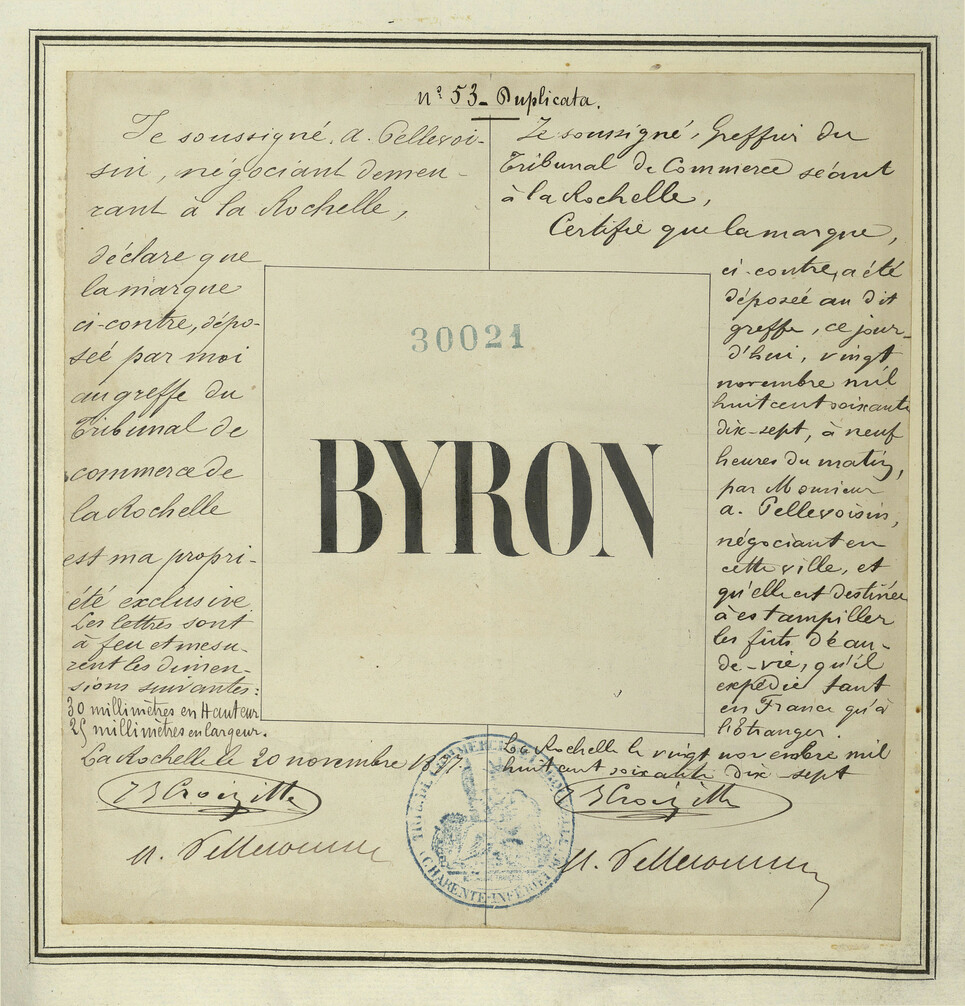 nº 53 _ Duplicata.
Je soussigné, A. Pellevoi-
sin, négociant demeu-
rant à la Rochelle,
déclare que
la marque
ci-contre, dépo-
sée par moi
au greffe du
Tribunal de
commerce de
la Rochelle
est ma propri-
été exclusive.
Les lettres sont
à feu et mesu-
rent les dimen-
sions suivantes:
30 millimètres en Hauteur
25 millimètres en largeur.
La Rochelle le 20 novembre 1877
Croizille
A. Pellevoisin
30021
BYRON
Le soussigné, Greffier du
Tribunal de Commerce séant
à la Rochelle,
Certifie que la marque,
ci-contre, a été
déposée au dit
greffe, ce jour-
d'hui, vingt
novembre mil
huit cent soixante
dix-sept, à neuf
heures du matin,
par Monsieur
A. Pellevoisin,
négociant en
cette ville, et
qu'elle est destinée
à estampiller
les fûts d'eau-
de-vie, qu'il
expédie tant
en France qu'à
l'Etranger.
La Rochelle le vingt novembre mil
huit cent soixante dix-sept
Croizille
A. Pellevoisin
(CHARENTE-INFÉRIEURE)